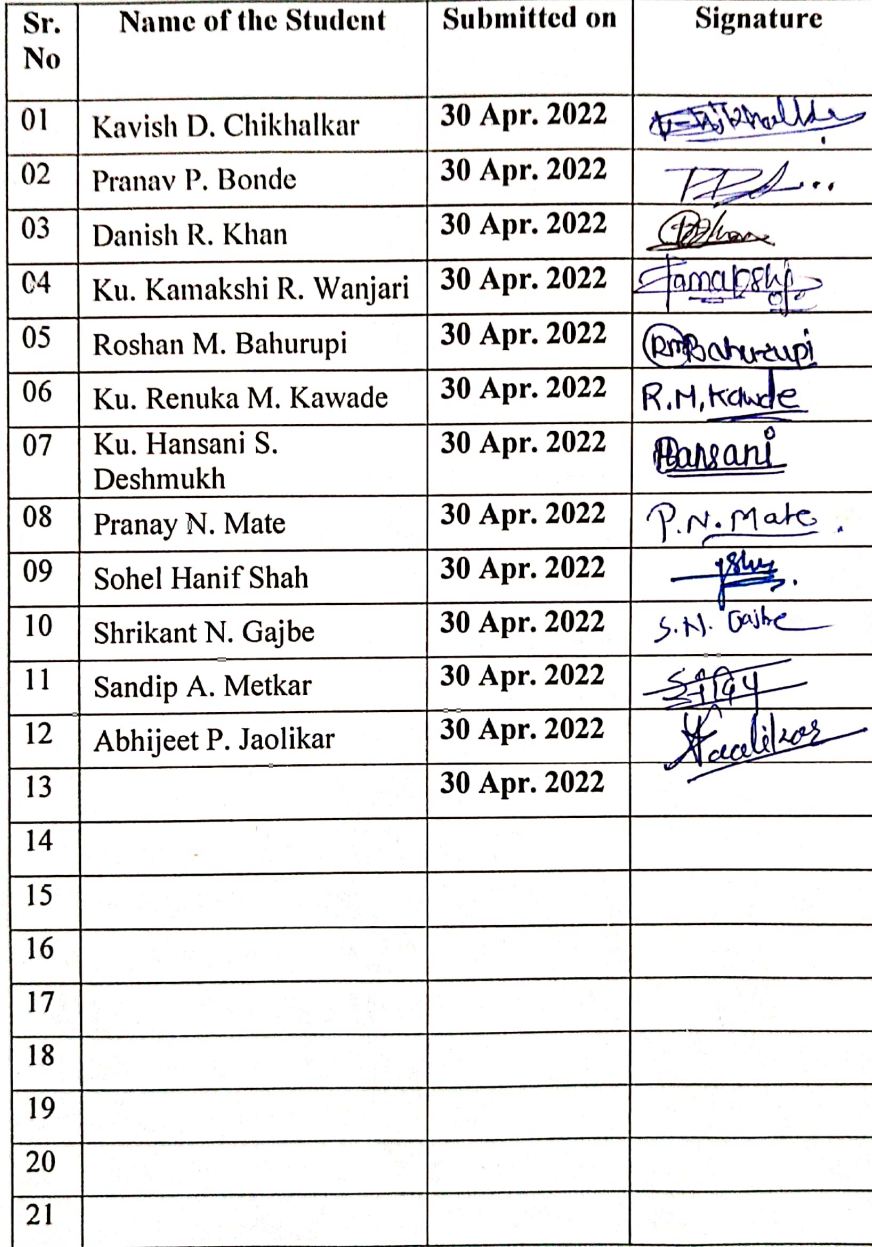 Sr. No Name of the Student Submitted on Signature
01 Kavish D. Chikhalkar 30 Apr. 2022
02 Pranav P. Bonde 30 Apr. 2022
03 Danish R. Khan 30 Apr. 2022
04 Ku. Kamakshi R. Wanjari 30 Apr. 2022 Kamakshi
05 Roshan M. Bahurupi 30 Apr. 2022 RmBahurupi
06 Ku. Renuka M. Kawade 30 Apr. 2022 R.M. Kawde
07 Ku. Hansani S. 30 Apr. 2022 Hansani
Deshmukh
08 Pranay N. Mate 30 Apr. 2022 P.N. Mate .
09 Sohel Hanif Shah 30 Apr. 2022
10 Shrikant N. Gajbe 30 Apr. 2022 S.N. Gajbe
11 Sandip A. Metkar 30 Apr. 2022
12 Abhijeet P. Jaolikar 30 Apr. 2022
13 30 Apr. 2022
14
15
16
17
18
19
20
21